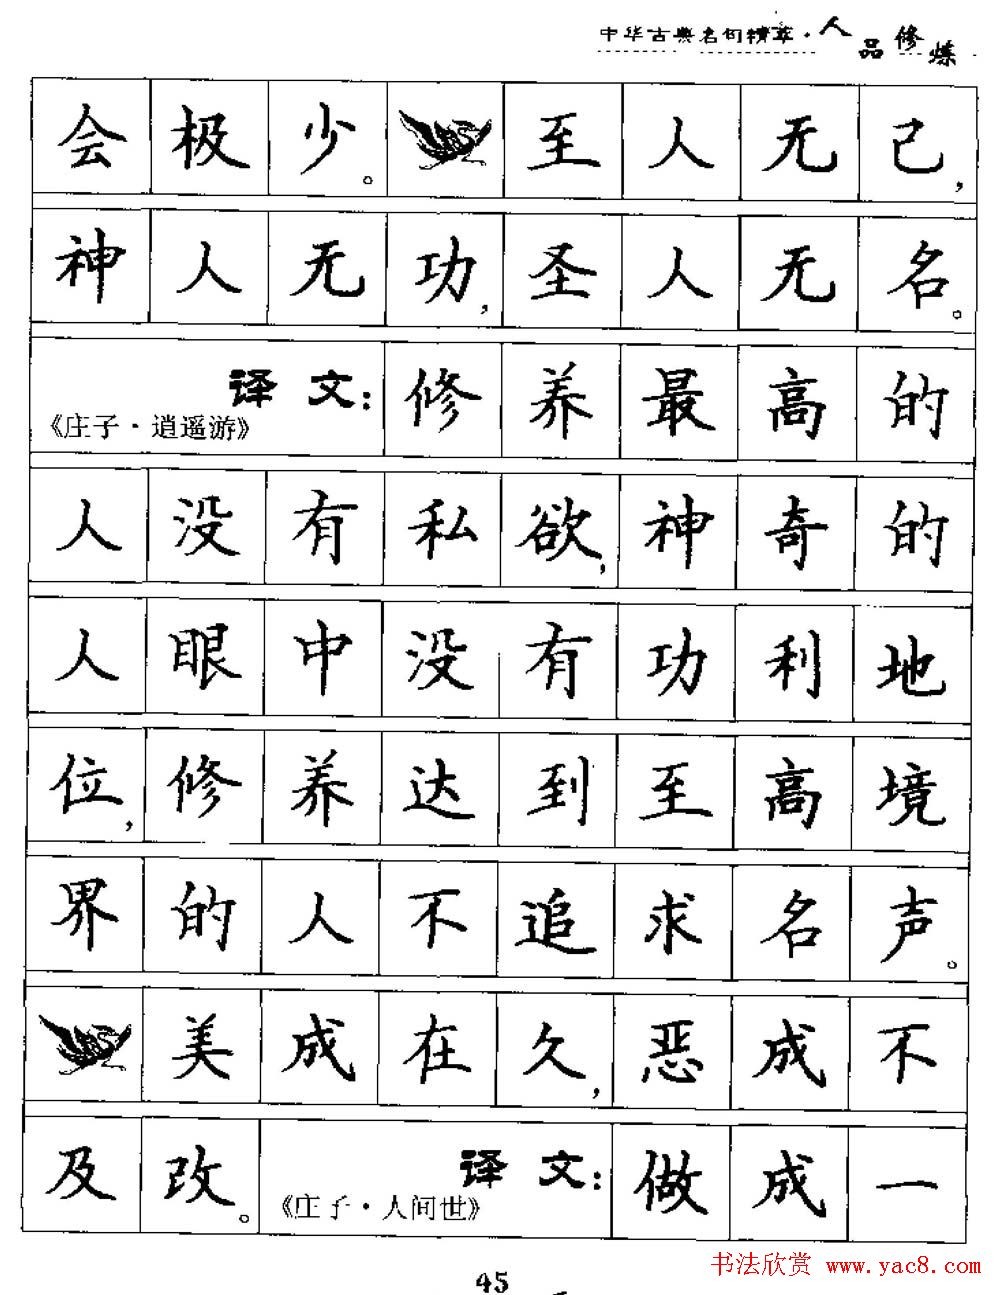 中华古典名句精萃·人品修炼
会极少。至人无己,
神人无功,圣人无名。
译文:修养最高的
《庄子·逍遥游》
人没有私欲,神奇的
人眼中没有功利地
位,修养达到至高境
界的人不追求名声。
美成在久,恶成不
及改。译文:做成一
《庄子·人间世》
45
书法欣赏 www.yac8.com